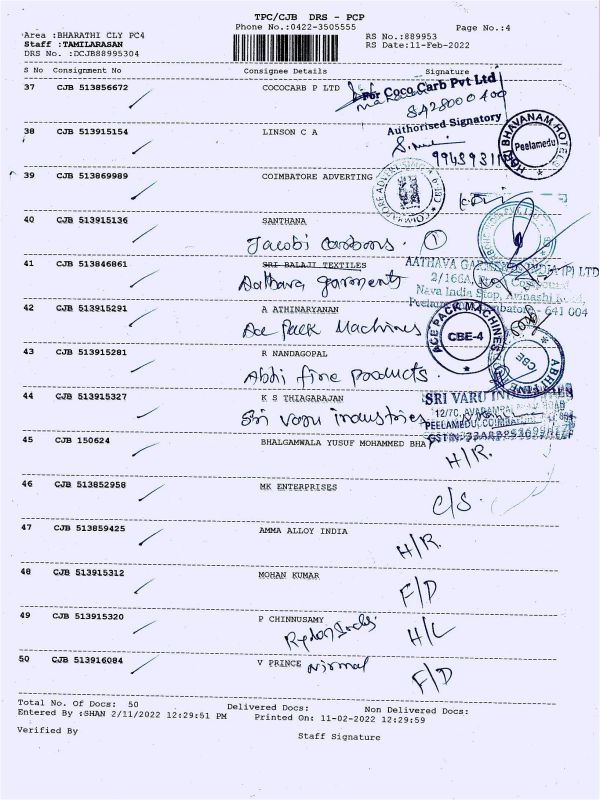 TPC/CJB DRS - PCP
Phone No.:0422-3505555 Page No.:4
Area :BHARATHI CLY PC4 RS No.:889953
Staff :TAMILARASAN RS Date:11-Feb-2022
DRS No. :DCJB88995304
S No Consignment No Consignee Details Signature
37 CJB 513856672 COCOCARB P LTD For Coco Carb Pvt Ltd
Authorised Signatory
38 CJB 513915154 LINSON C A
HARI BHAVANAM HOTELS Peelamedu
39 CJB 513869989 COIMBATORE ADVERTING
40 CJB 513915136 SANTHANA
Jacobi Carbons. 1
41 CJB 513846861 SRI BALAJI TEXTILES AATHAVA GARMENTS INDIA (P) LTD
Aathava garments 2/166A,
Nava India Stop, Avinashi Road,
42 CJB 513915291 A ATHINARYANAN 641 004
Ace Pack Machines ACE PACK MACHINES CBE-4
43 CJB 513915281 R NANDAGOPAL
Abhi fine products. ABHI FINE CBE
44 CJB 513915327 K S THIAGARAJAN SRI VARU INDUSTRIES
Sri varu industries 12/7C,
PEELAMEDU, COIMBATORE
45 CJB 150624 BHALGAMWALA YUSUF MOHAMMED BHA
H/R.
46 CJB 513852958 MK ENTERPRISES
C/S.
47 CJB 513859425 AMMA ALLOY INDIA
H/R.
48 CJB 513915312 MOHAN KUMAR
F/D
49 CJB 513915320 P CHINNUSAMY
H/L
50 CJB 513916084 V PRINCE Nirmal
F/D
Total No. Of Docs: 50 Delivered Docs: Non Delivered Docs:
Entered By :SHAN 2/11/2022 12:29:51 PM Printed On: 11-02-2022 12:29:59
Verified By Staff Signature